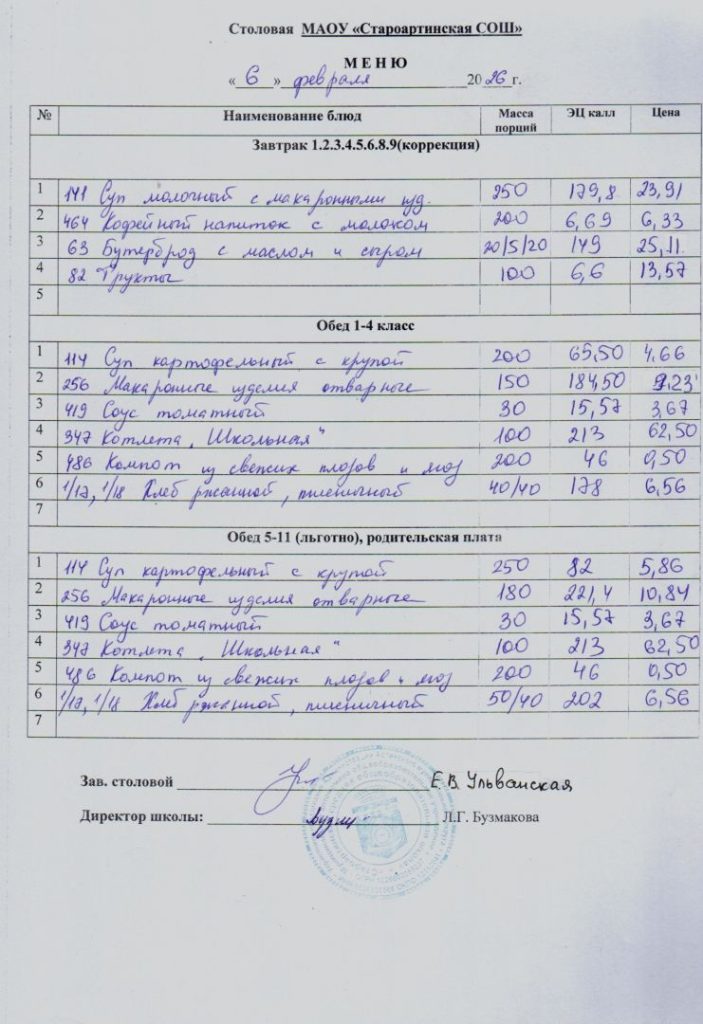 Столовая МАОУ «Староартинская СОШ»
М Е Н Ю
« 6 » февраля 2026 г.
№ Наименование блюд Масса порций ЭЦ калл Цена
Завтрак 1.2.3.4.5.6.8.9(коррекция)
1 141 Суп молочный с макаронными изд. 250 179,8 23,91
2 464 Кофейный напиток с молоком 200 6,69 6,33
3 63 Бутерброд с маслом и сыром 20/5/20 149 25,11
4 82 Фрукты 100 6,6 13,57
5
Обед 1-4 класс
1 114 Суп картофельный с крупой 200 65,50 4,66
2 256 Макаронные изделия отварные 150 184,50 9,23
3 419 Соус томатный 30 15,57 3,67
4 347 Котлета „Школьная" 100 213 62,50
5 486 Компот из свежих плодов и ягод 200 46 0,50
6 1/17, 1/18 Хлеб ржанной, пшеничный 40/40 178 6,56
7
Обед 5-11 (льготно), родительская плата
1 114 Суп картофельный с крупой 250 82 5,86
2 256 Макаронные изделия отварные 180 221,4 10,84
3 419 Соус томатный 30 15,57 3,67
4 347 Котлета „Школьная" 100 213 62,50
5 486 Компот из свежих плодов и ягод 200 46 0,50
6 1/17, 1/18 Хлеб ржанной, пшеничный 50/40 202 6,56
7
Зав. столовой Е.В. Ульванская
Директор школы: Л.Г. Бузмакова